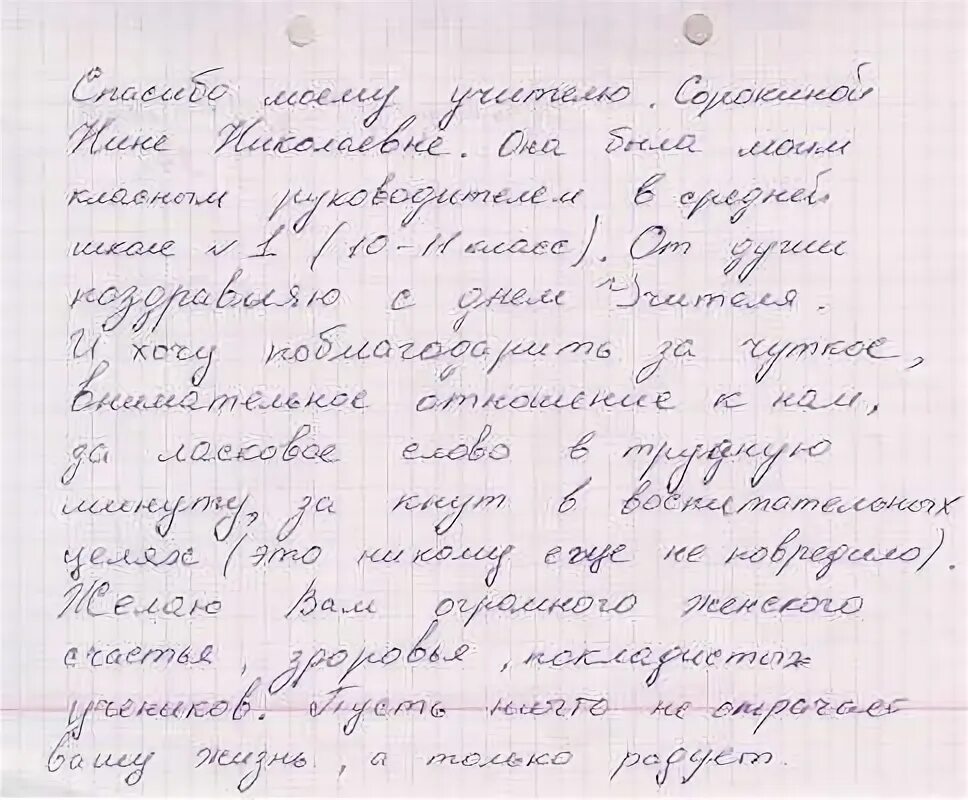 Спасибо моему учителю. Сорокиной
Нине Николаевне. Она была моим
класным руководителем в средней
школе № 1 (10-11 класс). От души
поздравляю с днем Учителя.
И хочу поблагодарить за чуткое,
внимательное отношение к нам,
за ласковое слово в трудную
минуту, за кнут в воспитательных
целях (это никому еще не повредило).
Желаю Вам огромного женского
счастья, здоровья, покладистых
учеников. Пусть ничто не омрачает
вашу жизнь, а только радует.